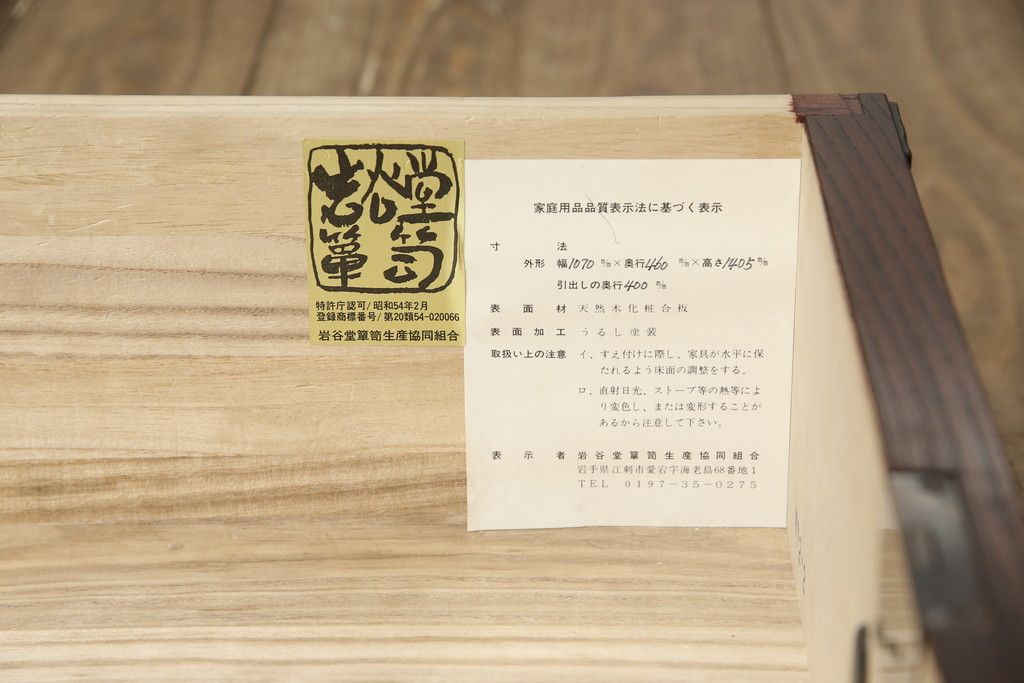 岩谷堂
箪笥
特許庁認可/昭和54年2月
登録商標番号/第20類54-020066
岩谷堂箪笥生産協同組合
家庭用品品質表示法に基づく表示
寸法
外形 幅1070 m/m×奥行460 m/m×高さ1405 m/m
引出しの奥行400 m/m
表面材 天然木化粧合板
表面加工 うるし塗装
取扱い上の注意 イ、すえ付けに際し、家具が水平に保
たれるよう床面の調整をする。
ロ、直射日光、ストーブ等の熱等によ
り変色し、または変形することが
あるから注意して下さい。
表示者 岩谷堂簞笥生産協同組合
岩手県江刺市愛宕字海老島68番地1
TEL 0197-35-0275